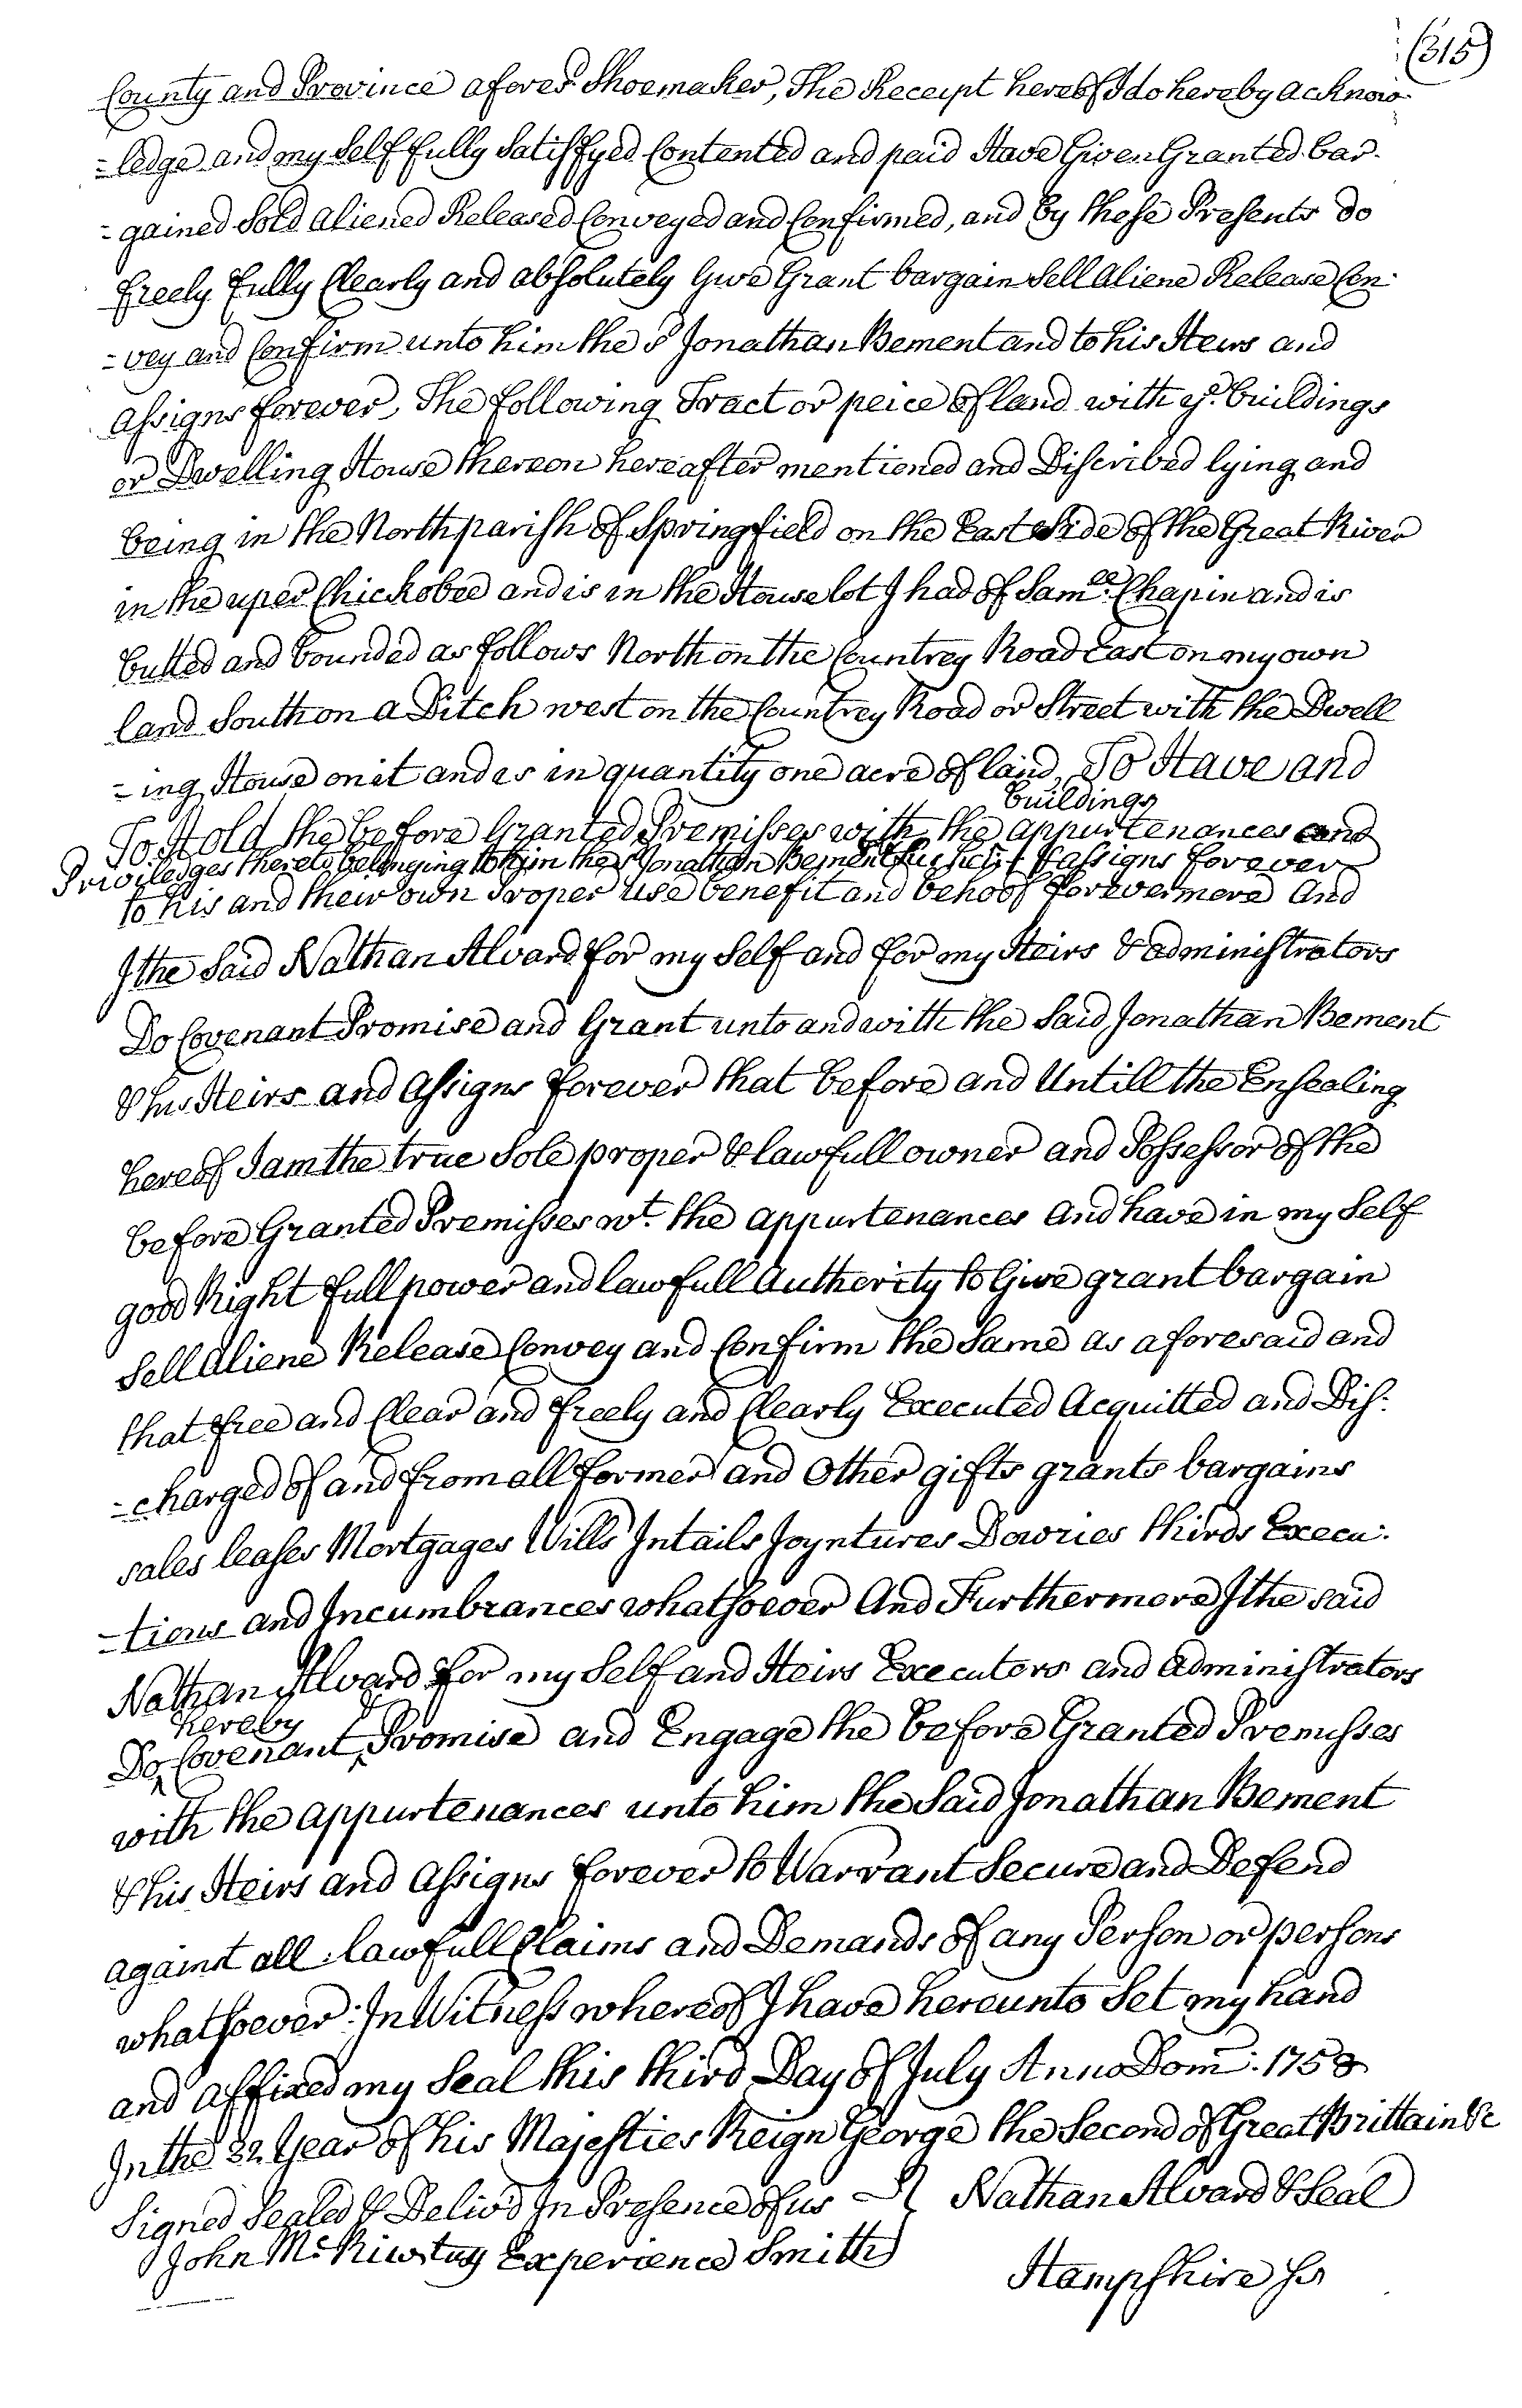 (315)
County and Province afores.d Shoemaker, The Receipt hereof I do hereby acknow-
=ledge and my Self fully Satisfyed Contented and paid Have Given Granted bar-
=gained Sold aliened Released Conveyed and Confirmed, and by these Presents do
freely fully Clearly and absolutely Give Grant bargain Sell aliene Release Con-
=vey and Confirm unto him the s.d Jonathan Bement and to his Heirs and
assigns forever, The following Tract or peice of land with y.e buildings
or Dwelling House thereon hereafter mentioned and Discribed lying and
being in the North parish of Springfield on the East Side of the Great River
in the uper Chickobee and is in the House lot I had of Sam.ll Chapin and is
butted and bounded as follows North on the Countrey Road East on my own
land South on a Ditch west on the Countrey Road or Street with the Dwell
=ing House on it and is in quantity one acre of land, To Have and
buildings
To Hold the before Granted Premisses with the appurtenances and
Priviledges thereto belonging to him the s.d Jonathan Bement his heirs & assigns forever
to his and their own Proper use benefit and behoof forevermore And
I the Said Nathan Alvard for my Self and for my Heirs & administrators
Do Covenant Promise and Grant unto and with the Said Jonathan Bement
& his Heirs and Assigns forever that before and Untill the Ensealing
hereof I am the true Sole proper & lawfull owner and Possessor of the
before Granted Premisses w.t the appurtenances and have in my Self
good Right full power and lawfull Authority to Give grant bargain
Sell Aliene Release Convey and Confirm the Same as aforesaid and
that free and Clear and freely and Clearly Executed Acquitted and Dis-
=charged of and from all former and Other gifts grants bargains
sales leases Mortgages Wills Intails Joyntures Dowries thirds Execu-
=tions and Incumbrances whatsoever And Furthermore I the said
Nathan Alvard for my Self and Heirs Executors and administrators
hereby
Do ^ Covenant ^ Promise and Engage the before Granted Premisses
with the appurtenances unto him the Said Jonathan Bement
& his Heirs and Assigns forever to Warrant Secure and Defend
against all lawfull Claims and Demands of any Person or persons
whatsoever: In Witness whereof I have hereunto Set my hand
and affixed my Seal this third Day of July Anno Dom: 1758
In the 32 Year of his Majesties Reign George the Second of Great Brittain &c
Signed Sealed & Deliv'd In Presence of us Nathan Alvard & Seal
John Experience Smith
Hampshire ss